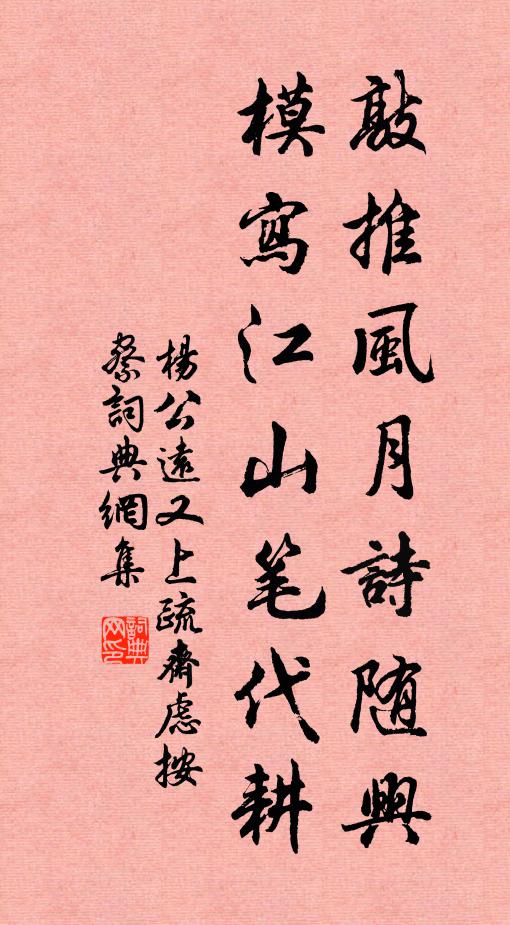 敲推風月詩随興
模寫江山笔代耕
楊公遠又上疏齋慮按
察詞典網集
詞典网印